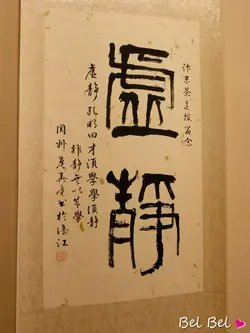 汴京茶道留念
虛靜
虛靜 孔明曰才須學學須靜
非靜無以成學
州書於濠江
Bel Bel